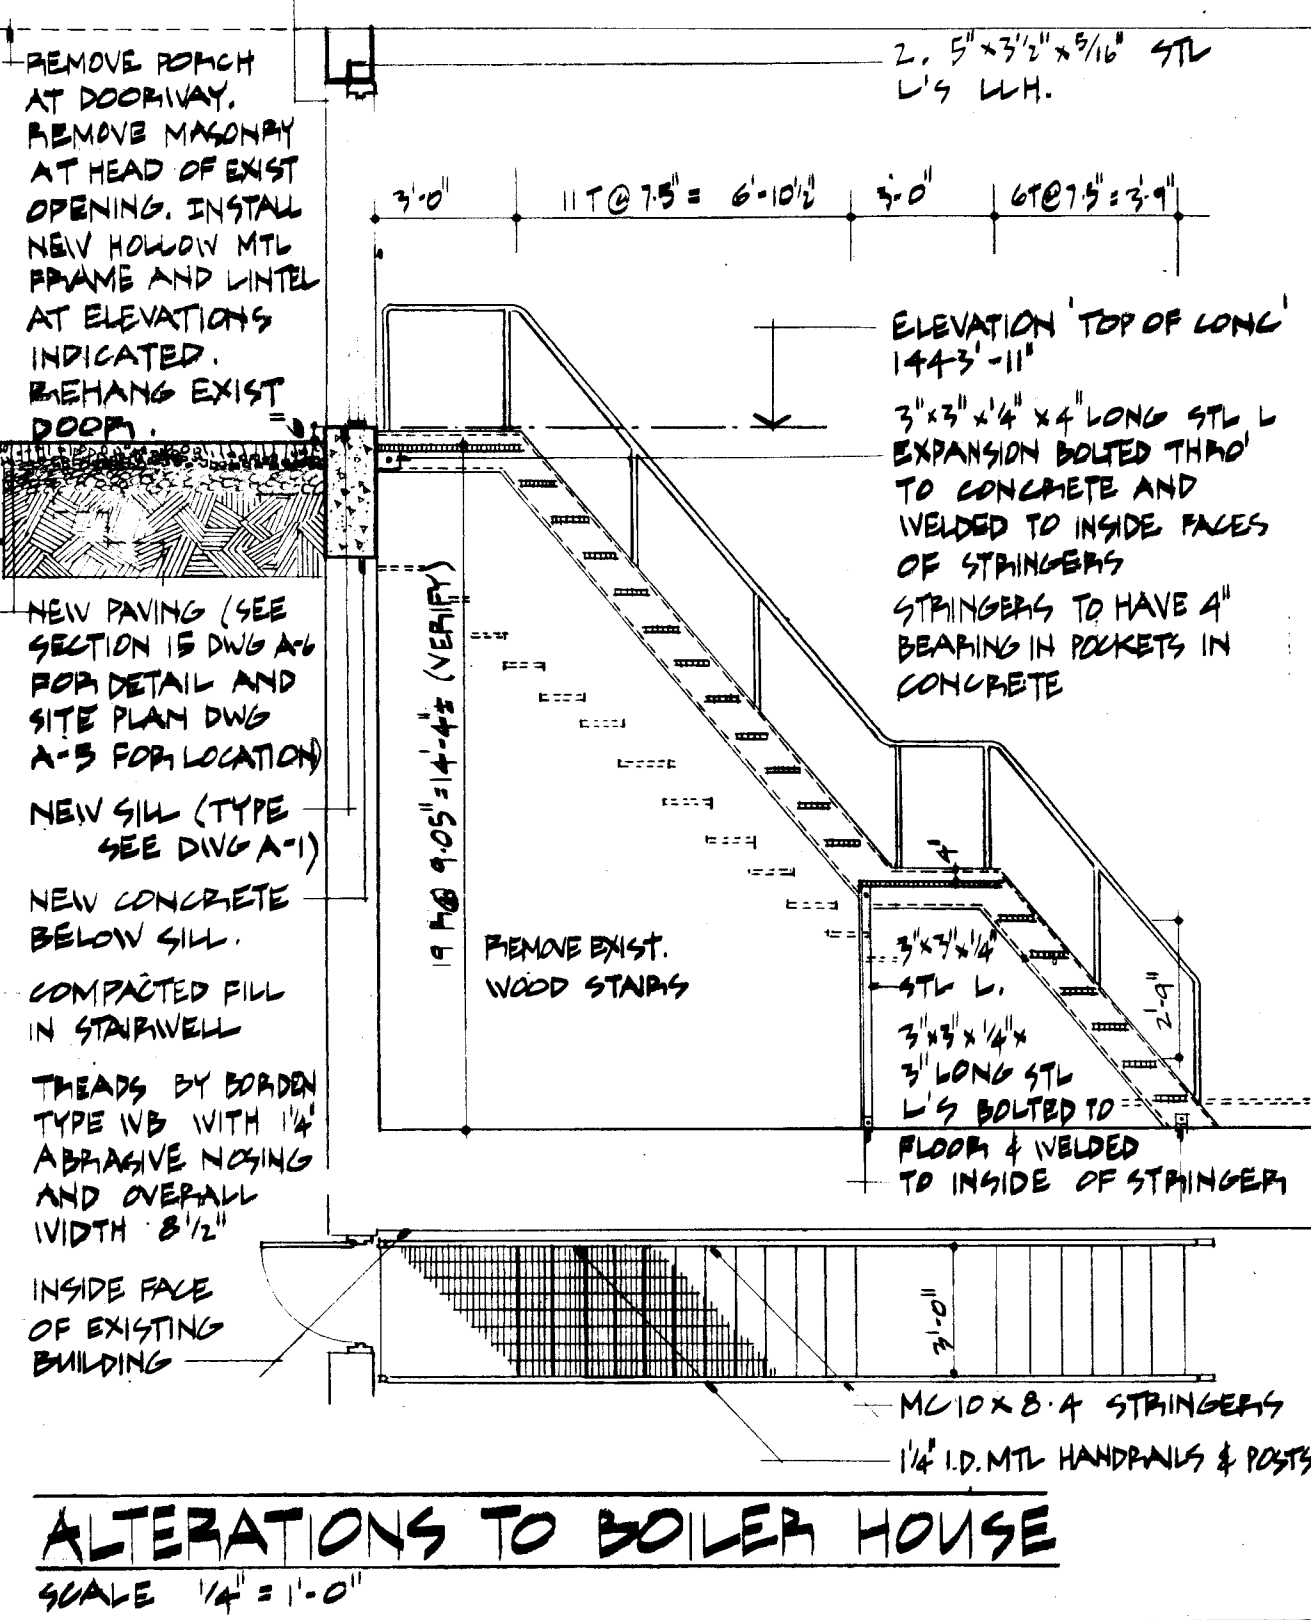 REMOVE PORCH
AT DOORWAY.
REMOVE MASONRY
AT HEAD OF EXIST
OPENING. INSTALL
NEW HOLLOW MTL
FRAME AND LINTEL
AT ELEVATIONS
INDICATED.
REHANG EXIST
DOOR.
NEW PAVING (SEE
SECTION 15 DWG A-6
FOR DETAIL AND
SITE PLAN DWG
A-5 FOR LOCATION)
NEW SILL (TYPE
SEE DWG A-1)
NEW CONCRETE
BELOW SILL.
COMPACTED FILL
IN STAIRWELL
TREADS BY BORDEN
TYPE WB WITH 1¼"
ABRASIVE NOSING
AND OVERALL
WIDTH 8½"
INSIDE FACE
OF EXISTING
BUILDING
2. 5"x3½"x5/16" STL
L'S LLH.
3'-0"
11T@7.5"= 6'-10½"
3'-0"
6T@7.5"=3'-9"
ELEVATION 'TOP OF CONC'
1443'-11"
3"x3"x¼"x4" LONG STL L
EXPANSION BOLTED THRO'
TO CONCRETE AND
WELDED TO INSIDE FACES
OF STRINGERS
STRINGERS TO HAVE 4"
BEARING IN POCKETS IN
CONCRETE
19 R@ 9.05"=14'-4"± (VERIFY)
REMOVE EXIST.
WOOD STAIRS
4"
3"x3"x¼"
STL L.
2'-9"
3"x3"x¼"x
3" LONG STL
L'S BOLTED TO
FLOOR & WELDED
TO INSIDE OF STRINGER
3'-0"
MC10x8.4 STRINGERS
1¼" I.D. MTL HANDRAILS & POSTS
ALTERATIONS TO BOILER HOUSE
SCALE ¼" = 1'-0"